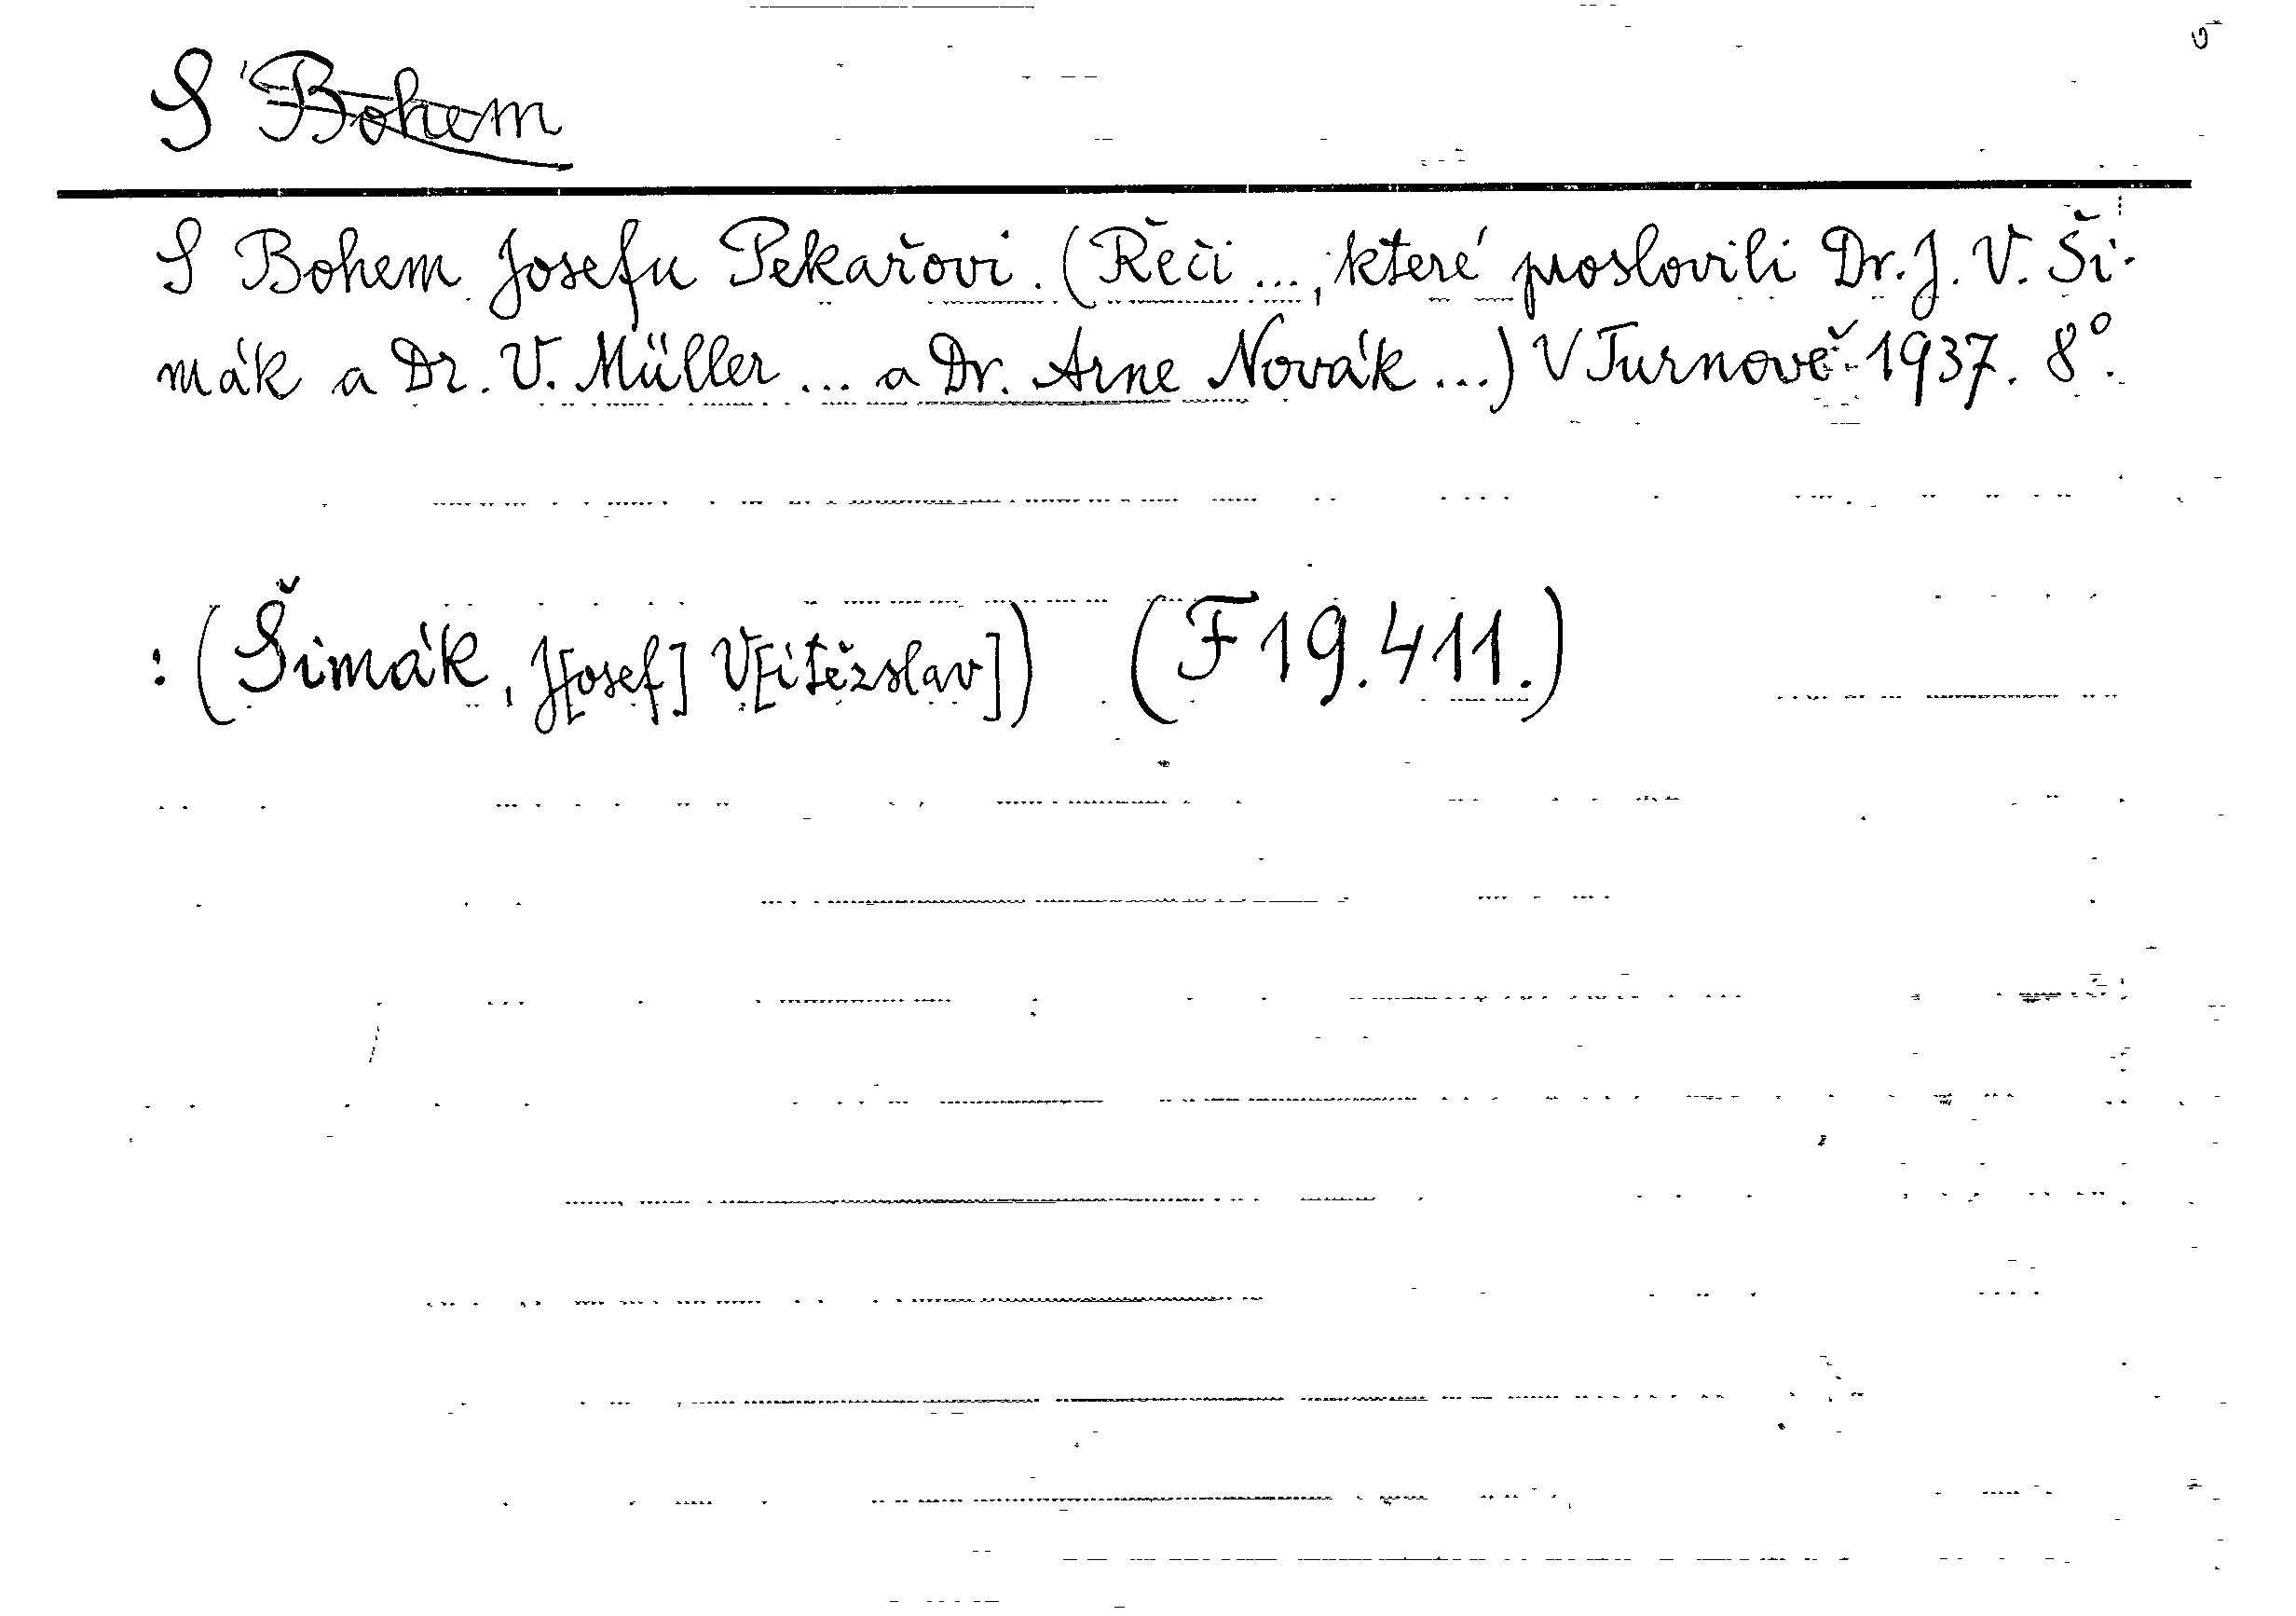 S Bohem
S Bohem Josefu Pekařovi. (Řeči ..., které proslovili Dr. J. V. Ši-
mák a Dr. V. Müller ... a Dr. Arne Novák ...) V Turnově 1937. 8°.
: (Šimák, J[osef] V[ítězslav]) (F 19.411.)